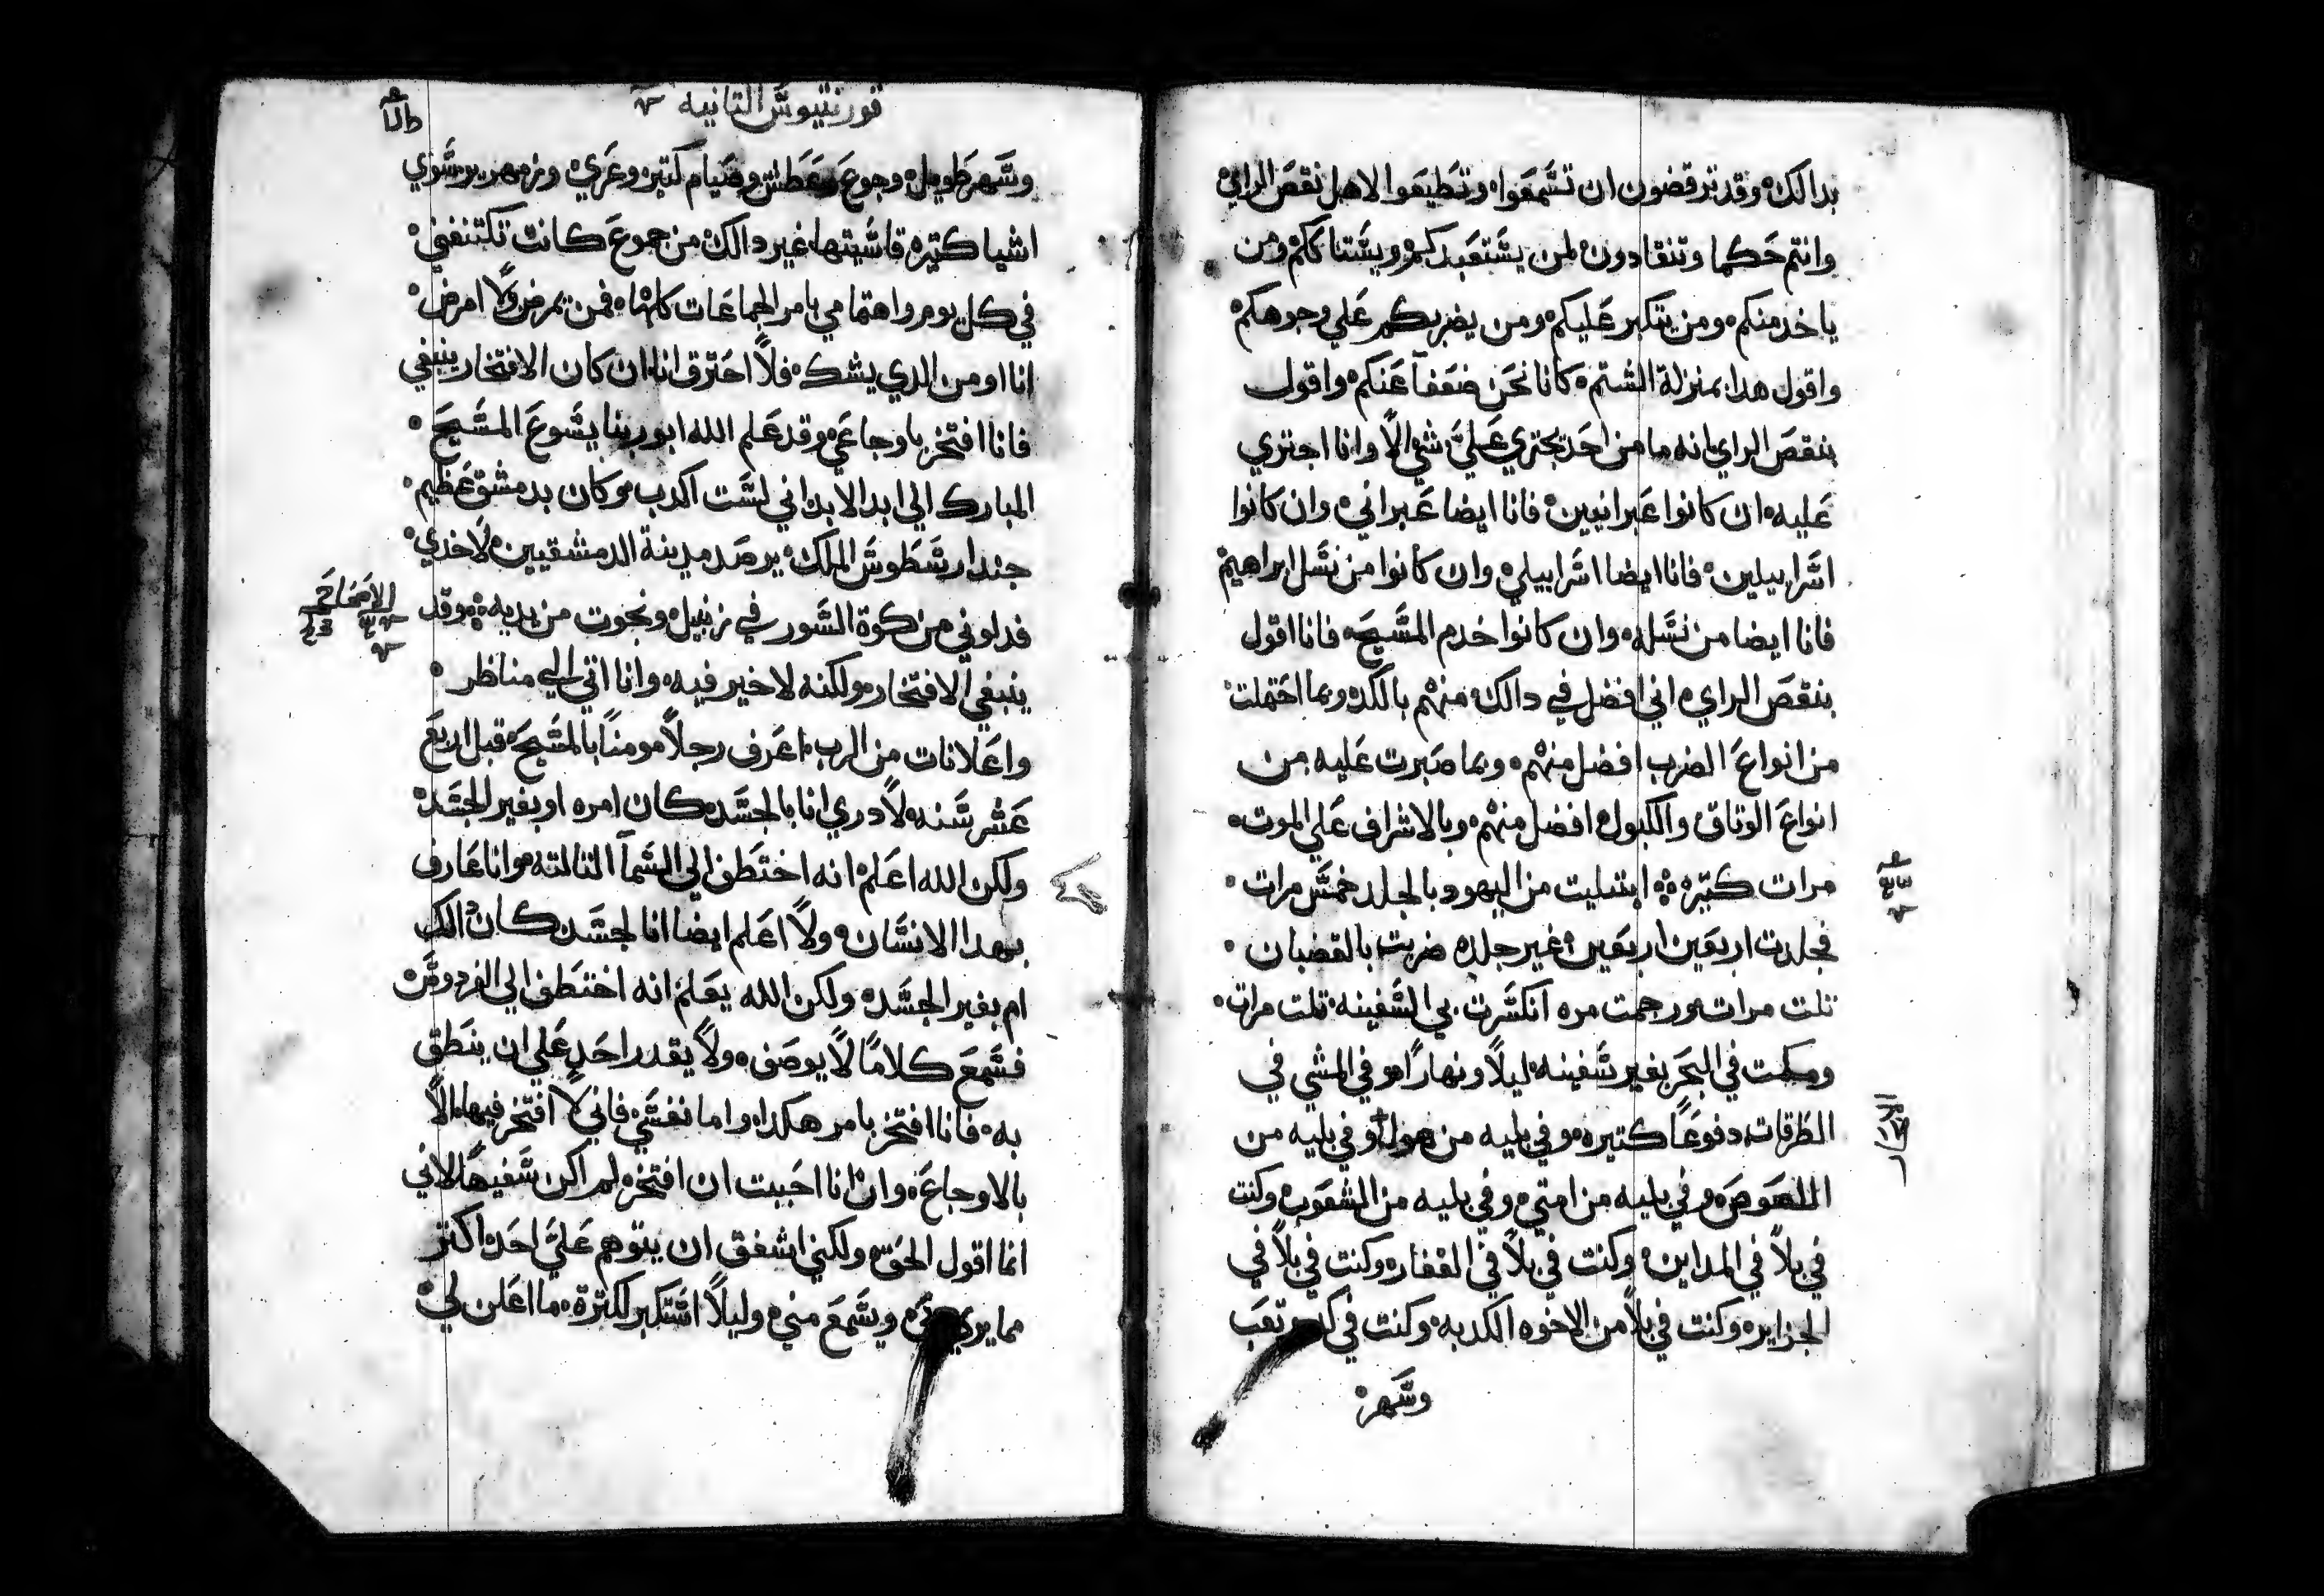 بدالك وقد ترقضون ان تسمعوا وتطيعوا الاهل نقص الراي
وانتم حكما وتنقادون لمن يستعبدكم ويستاكلكم ومن
ياخد منكم ومن يتكبر عليكم ومن يضربكم علي وجوهكم
واقول هدا بمنزلة الشتم كانا نحن ضعفا عنكم واقول
بنقص الراي انه ما من احد يجتري علي شي الا وانا اجتري
عليه ان كانوا عبرانيين فانا ايضا عبراني وان كانوا
اسراييلين فانا ايضا اسراييلي وان كانوا من نسل ابراهيم
فانا ايضا من نسله وان كانوا خدم المسيح فانا اقول
بنقص الراي اني افضل في دالك منهم بالكد وبما احتملت
من انواع الضرب افضل منهم وبما صبرت عليه من
انواع الوتاق والكبول افضل منهم وبالاشراف علي الموت
مرات كتيره ابتليت من اليهود بالجلد خمس مرات
فجلدت اربعين اربعين غير جلده ضربت بالقضبان
تلت مرات ورجمت مره انكسرت بي السفينه تلت مرات
ومكتت في البحر بغير سفينه ليلا ونهارا وفي المشي في
الطرقات دفوعا كتيره وفي بليه من هولا وفي بليه من
اللصوص وفي بليه من امتي وفي بليه من الشعوب وكنت
في بلا في المداين وكنت في بلا في القفار وكنت في بلا في
الجزاير وكنت في بلا من الاخوه الكدبه وكنت في كد وتعب
وسهر
قورنتيوس التانيه
وسهر طويل وجوع وعطش وصيام كتير وعري وزمهرير وسوي
اشيا كتيره قاسيتها غير دالك من جموع كانت تكتنفني
في كل يوم واهتمامي بامر الجماعات كلها فمن يمرض ولا امرض
انا او من الدي يشك فلا احترق انا ان كان الافتخار ينبغي
فانا افتخر باوجاعي وقد علم الله ابو ربنا يسوع المسيح
المبارك الي ابد الابد اني لست اكدب وكان بدمشق عظيم
جند ارسطوس الملك يرصد مدينة الدمشقيين لاخدي
فدلوني من كوة السور في زنبيل ونجوت من يديه وقد
الاصحاح
ينبغي الافتخار ولكنه لا خير فيه وانا اتي الي مناظر
واعلانات من الرب اعرف رجلا مومنا بالمسيح قبل اربع
عشر سنه لا دري انا بالجسد كان امره او بغير الجسد
ولكن الله اعلم انه اختطف الي السما التالته وانا عارف
بهدا الانسان ولا اعلم ايضا انا لجسد كان دالك
ام بغير الجسد ولكن الله يعلم انه اختطف الي الفردوس
فسمع كلاما لا يوصف ولا يقدر احد علي ان ينطق
به فانا افتخر بامر هكدا واما نفسي فاني لا افتخر فيها الا
بالاوجاع وان انا احببت ان افتخر لم اكن سفيها لاني
انما اقول الحق ولكني اشفق ان يتوهم علي احد اكتر
مما يري ويسمع مني وليلا استكبر لكترة ما اعلن لي